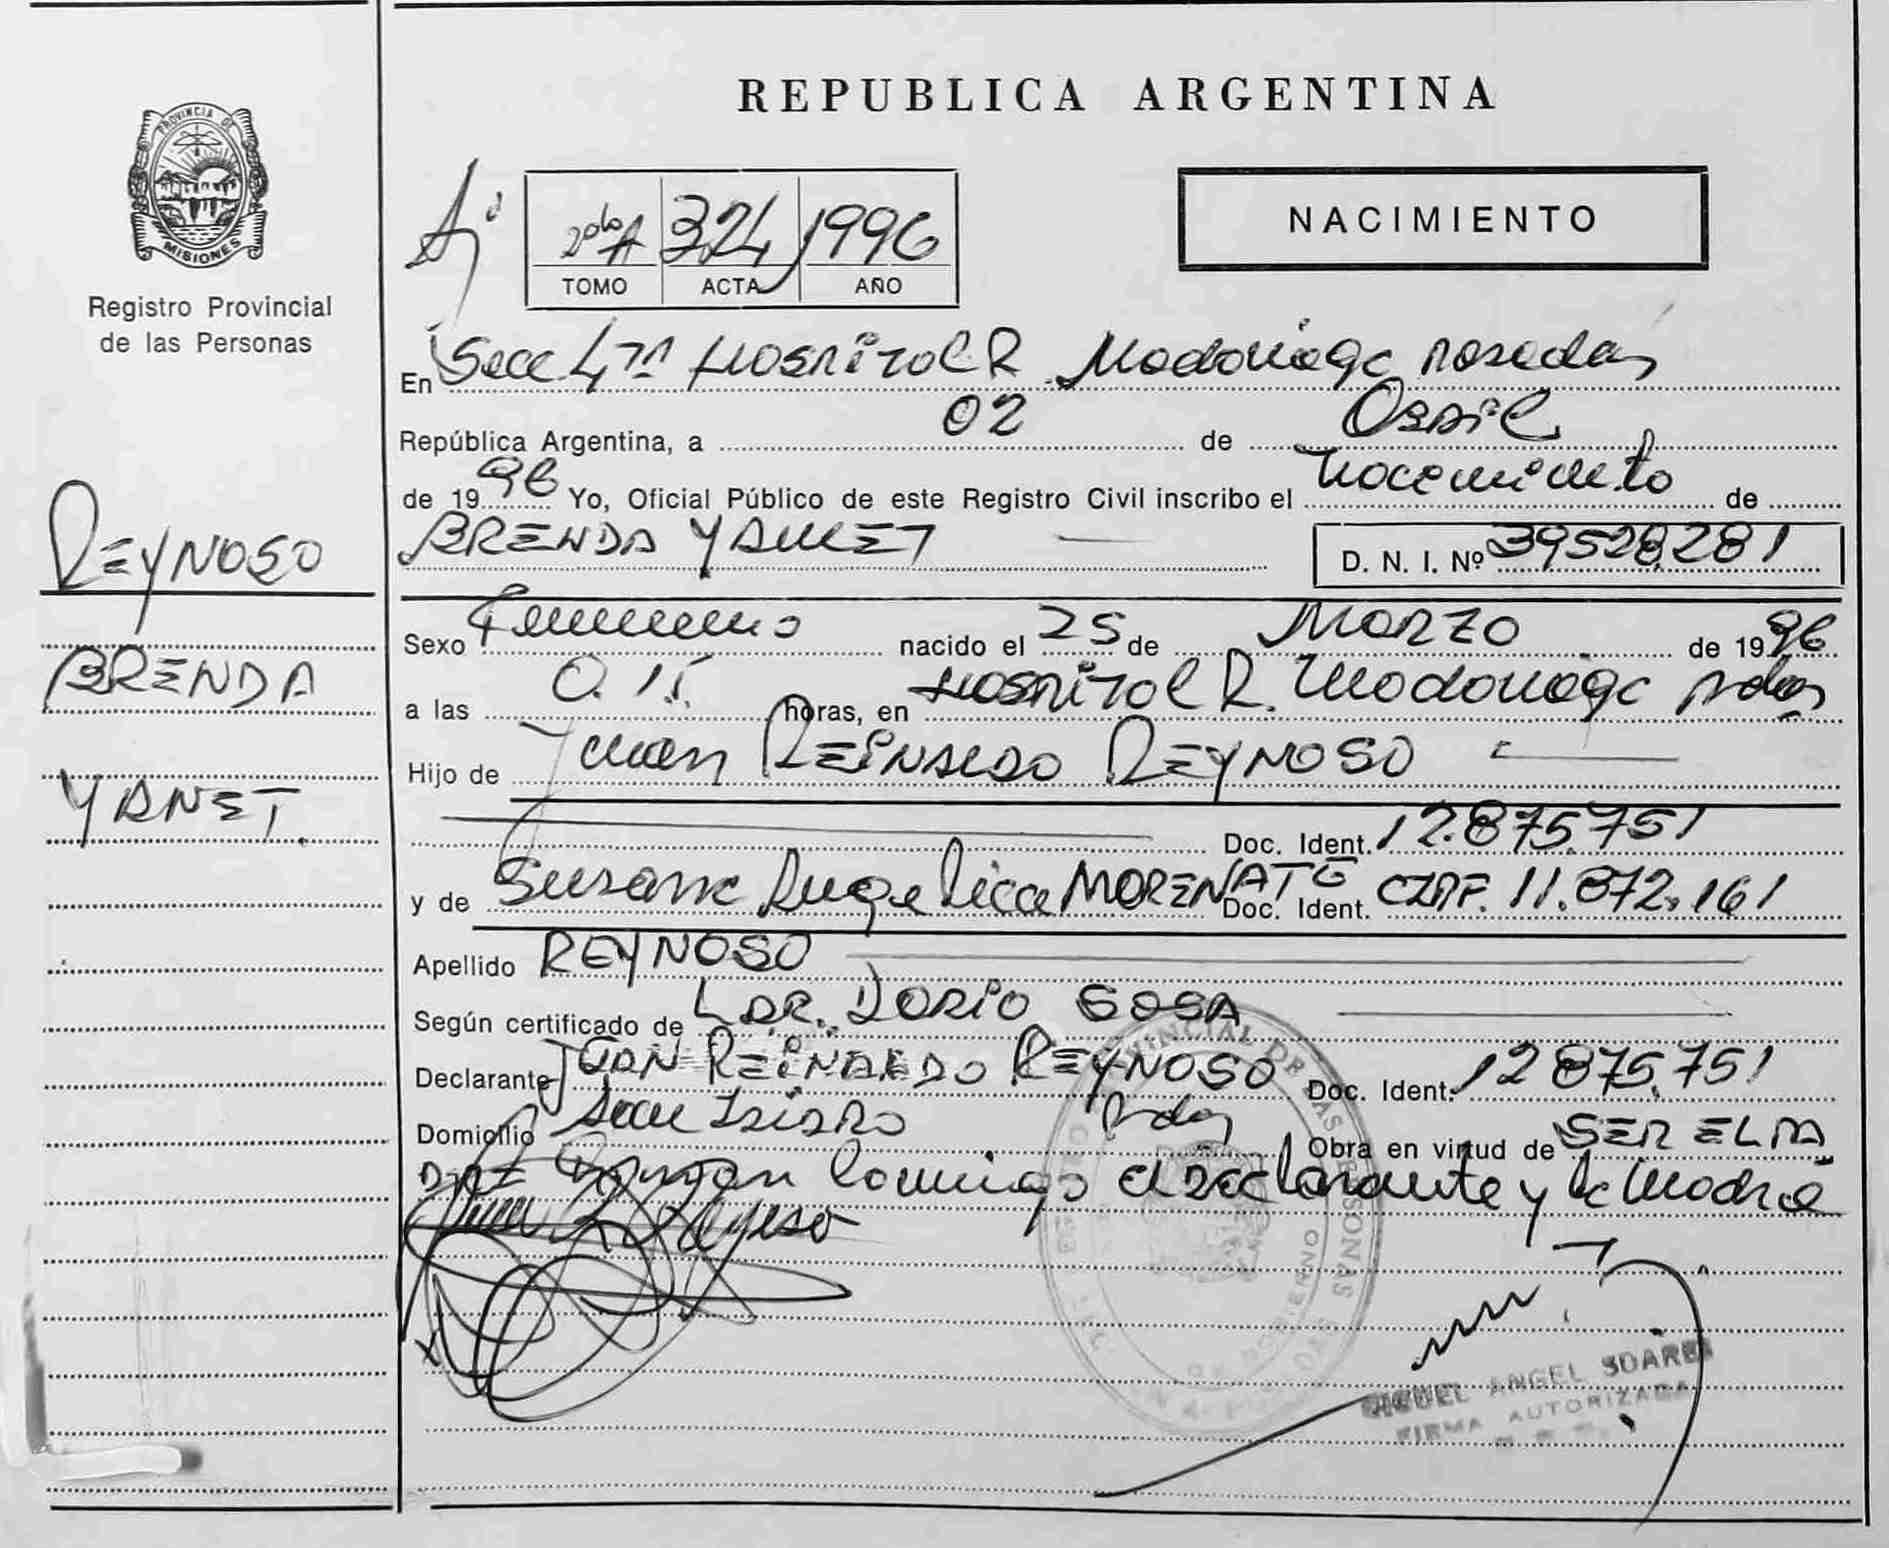 REPUBLICA ARGENTINA
PROVINCIA DE MISIONES
Registro Provincial
de las Personas
2do A 324 1996
TOMO ACTA AÑO
NACIMIENTO
En Secc 4ta Hospital R Madariaga Posadas
República Argentina, a 02 de Abril
de 1996 Yo, Oficial Público de este Registro Civil inscribo el nacimiento de
BRENDA YANET D. N. I. Nº 39528.281
REYNOSO
BRENDA
YANET.
Sexo Femenino nacido el 25 de Marzo de 1996
a las 0.15 horas, en Hospital R. Madariaga Pdas
Hijo de Juan REINALDO REYNOSO
Doc. Ident. 12.875.751
y de Susana Angelica MORENATE Doc. Ident. CIPF. 11.872.161
Apellido REYNOSO
Según certificado de DR. DARIO SOSA
Declarante JUAN REINALDO REYNOSO Doc. Ident. 12875.751
Domicilio San Isidro Pdas Obra en virtud de SER EL PA
DRE Firman Conmigo el Declarante y la Madre
MIGUEL ANGEL SOARES
FIRMA AUTORIZADA